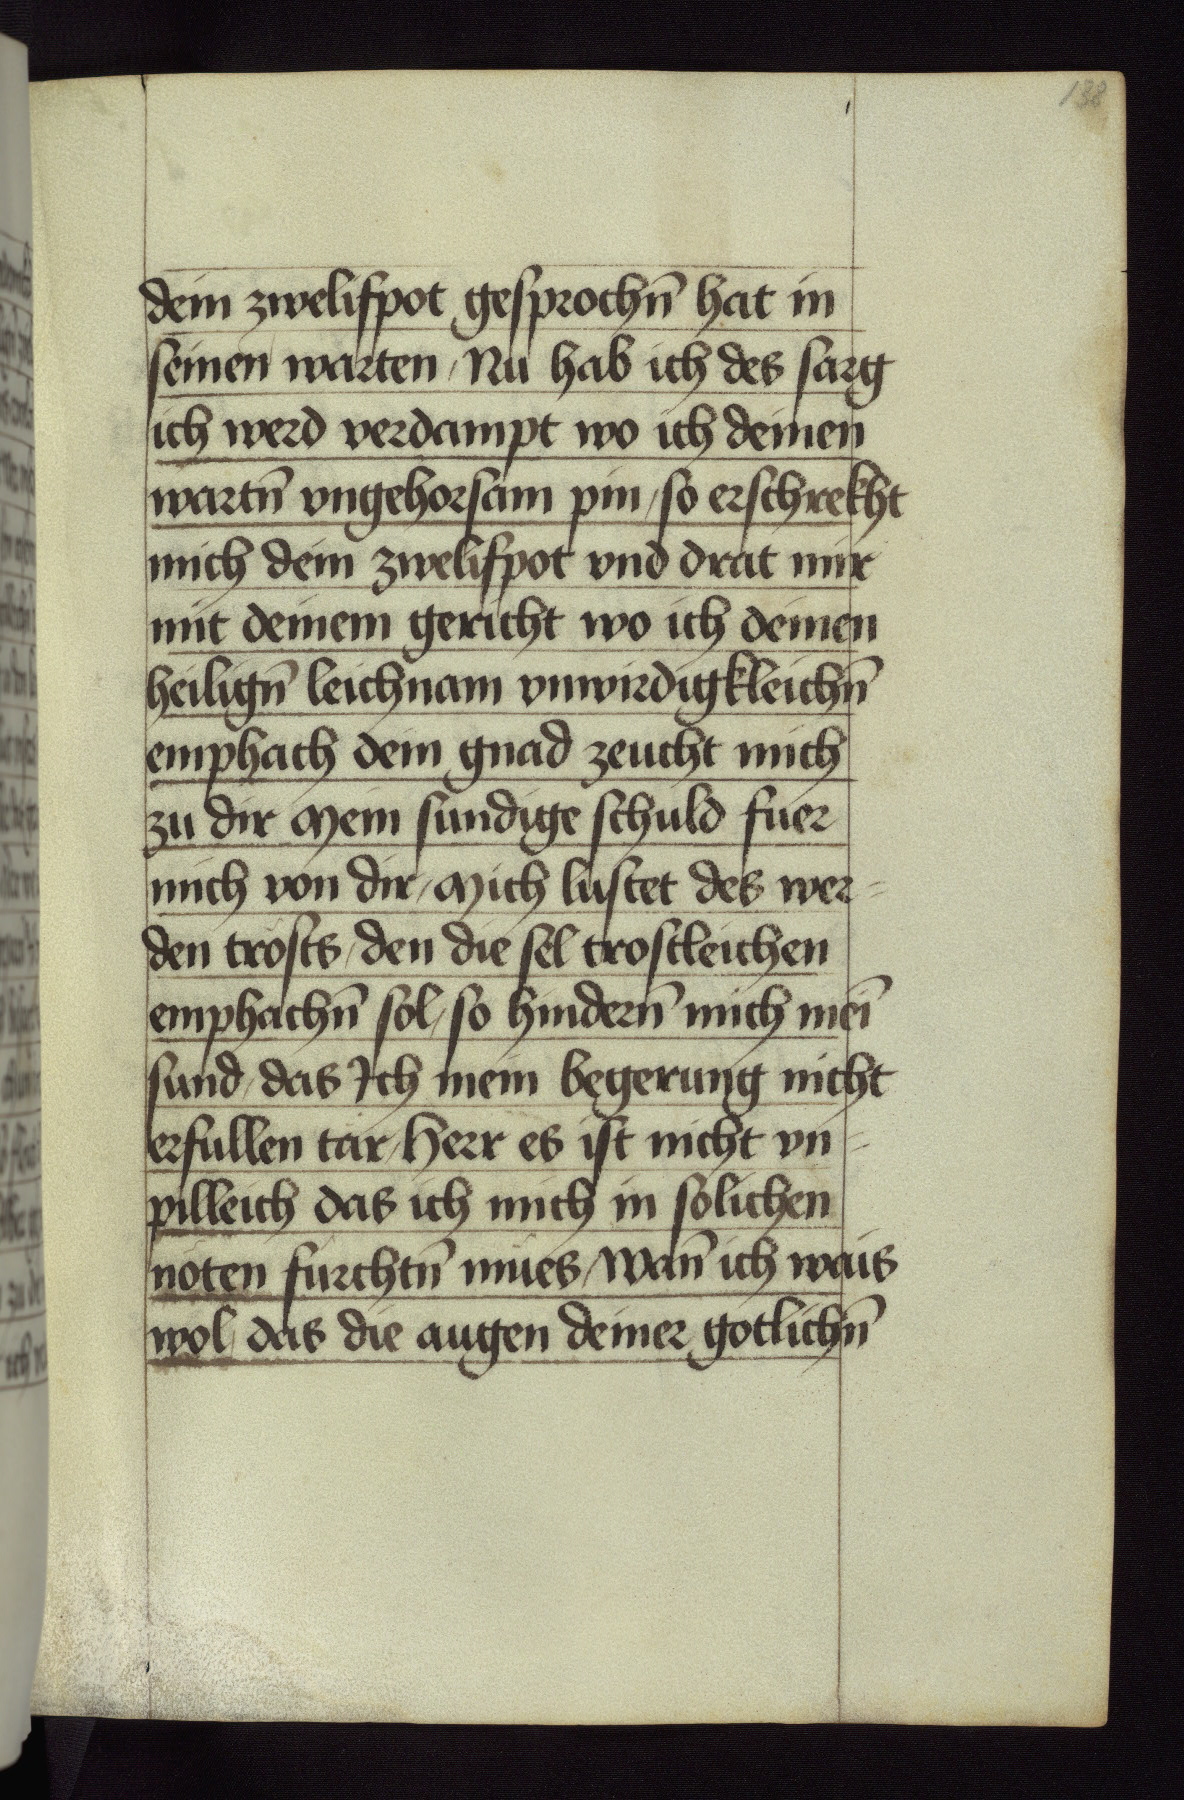 138
dein zwelifpot gesprochn̄ hat in
seinen warten / Nu hab ich des sarg
ich werd verdampt wo ich deinen
wartn̄ vngehorsam pin / so erschrekht
mich dein zwelifpot vnd drat mir
mit deinem gericht wo ich deinen
heilign̄ leichnam vnwirdigkleichn̄
emphach dein gnad zeucht mich
zu dir Mein sundige schuld fuer
mich von dir / Mich lustet des wer=
den trosts / den die sel trostleichen
emphachn̄ sol / so hindern̄ mich mei̅
sund / das Ich mein begerung nicht
erfullen tar / Herr es ist nicht vn=
pilleich das ich mich in solichen
noten furchtn̄ mues / Wan̄ ich wais
wol / das die augen deiner gotlichn̄